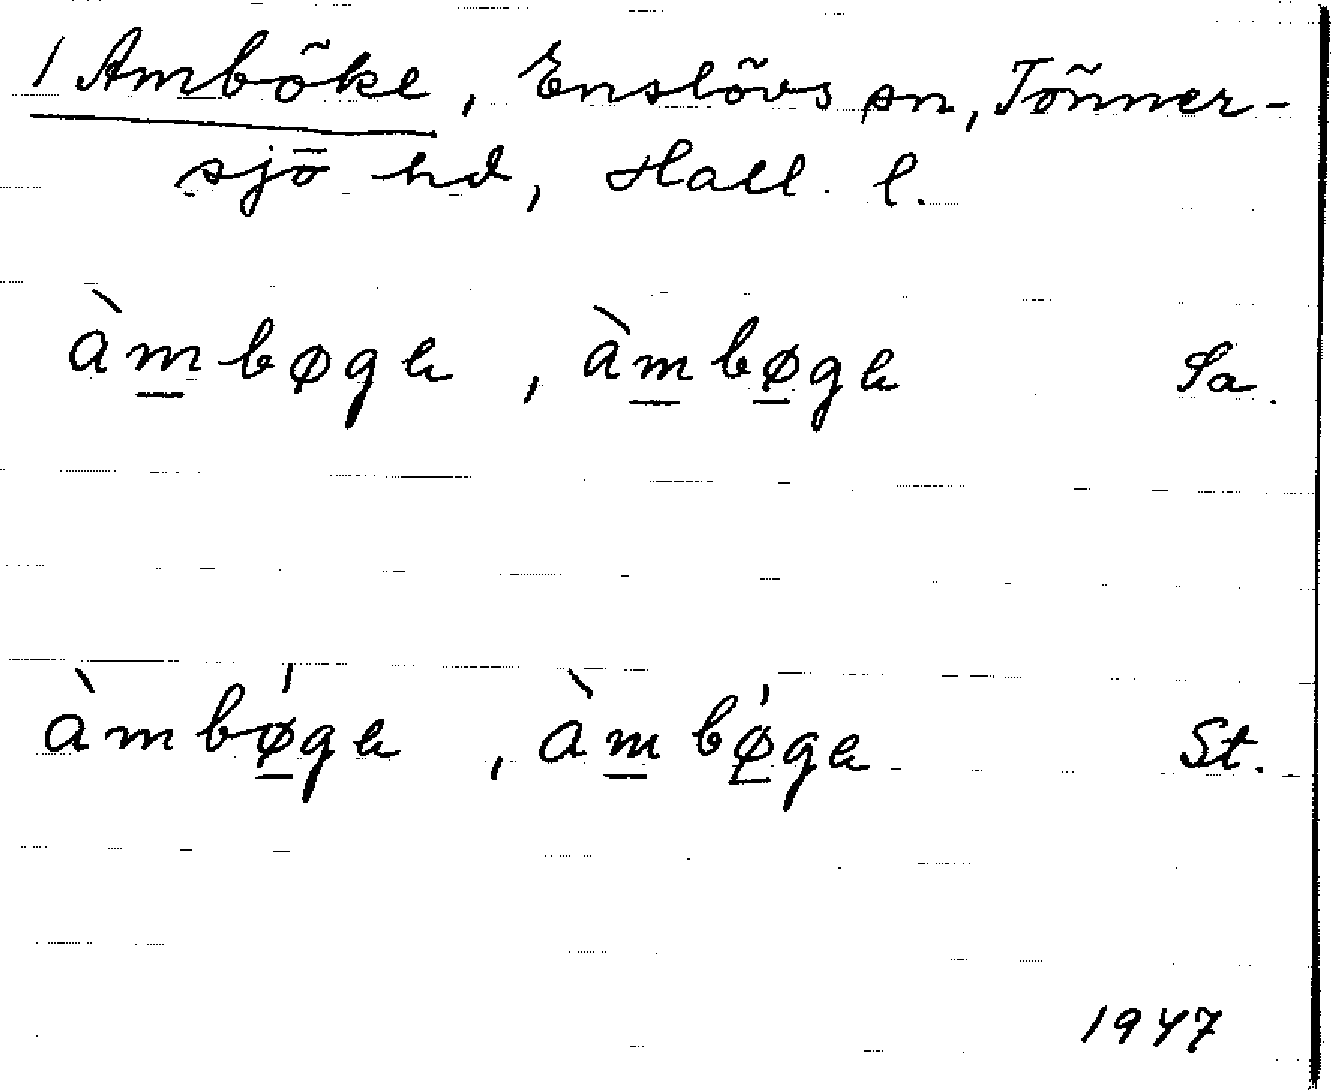 1 Amböke, Enslövs sn, Tönner-
sjö hd, Hall. l.
àm̲bøgə, àm̲bø̲gə Sa.
àmbǿ̲gə, àm̲bǿ̲gə St.
1947